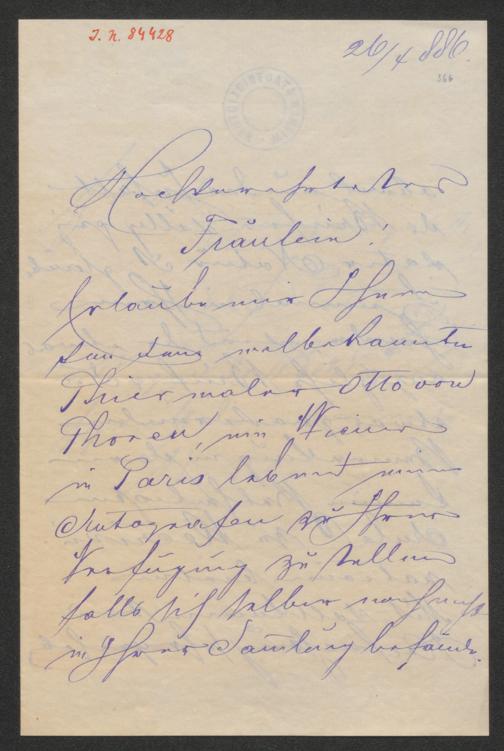 J. N. 84428
26/4 886.
366
Hochverehrtestes
Fräulein!
Erlaube mir Ihnen
von dem weltbekannten
Thiermaler Otto von
Thoren, ein Wiener
in Paris lebend einen
Autografen zu Ihrer
Verfügung zu stellen
falls sich selber noch nicht
in Ihrer Samlung befände.